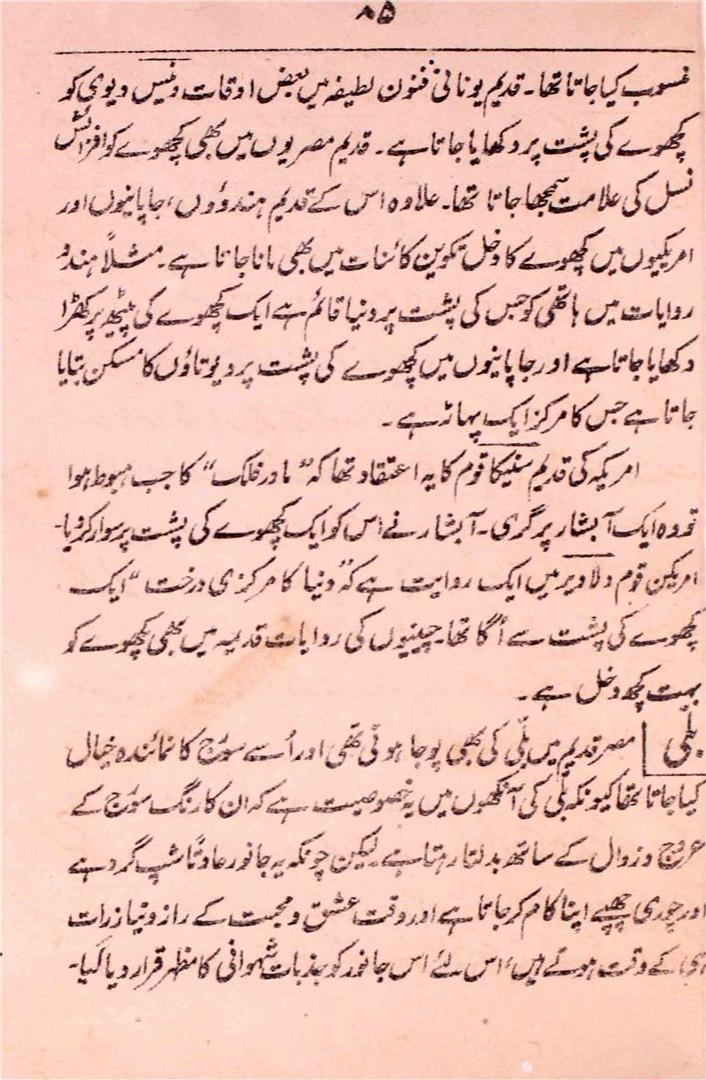 ۸۵
منسوب کیا جاتا تھا۔ قدیم یونانی فنون لطیفہ میں بعض اوقات وینس دیوی کو
کچھوے کی پشت پر دکھایا جاتا ہے۔ قدیم مصریوں میں بھی کچھوے کو افزائش
نسل کی علامت سمجھا جاتا تھا۔ علاوہ اس کے قدیم ہندوؤں، جاپانیوں اور
امریکیوں میں کچھوے کا دخل تکوین کائنات میں بھی مانا جاتا ہے۔ مثلاً ہندو
روایات میں ہاتھی کو جس کی پشت پر دنیا قائم ہے ایک کچھوے کی پیٹھ پر کھڑا
دکھایا جاتا ہے اور جاپانیوں میں کچھوے کی پشت پر دیوتاؤں کا مسکن بتایا
جاتا ہے جس کا مرکز ایک پہاڑ ہے۔
امریکہ کی قدیم سنیکا قوم کا یہ اعتقاد تھا کہ "مادر فلک" کا جب ہبوط ہوا
تو وہ ایک آبشار پر گری۔ آبشار نے اس کو ایک کچھوے کی پشت پر سوار کر دیا۔
امریکن قوم دلاویر میں ایک روایت ہے کہ "دنیا کا مرکزی درخت" ایک
کچھوے کی پشت سے اُگا تھا۔ چینیوں کی روایات قدیمہ میں بھی کچھوے کو
بہت کچھ دخل ہے۔
بلّی مصر قدیم میں بلّی کی بھی پوجا ہوتی تھی اور اُسے سورج کا نمائندہ خیال
کیا جاتا تھا کیونکہ بلّی کی آنکھوں میں یہ خصوصیت ہے کہ ان کا رنگ سورج کے
عروج و زوال کے ساتھ بدلتا رہتا ہے۔ لیکن چونکہ یہ جانور عادتاً شب گرد ہے
اور چوری چھپے اپنا کام کر جاتا ہے اور وقت عشق و محبت کے راز و نیاز رات
ہی کے وقت ہوتے ہیں، اس لئے اس جانور کو جذبات شہوانی کا مظہر قرار دیا گیا۔